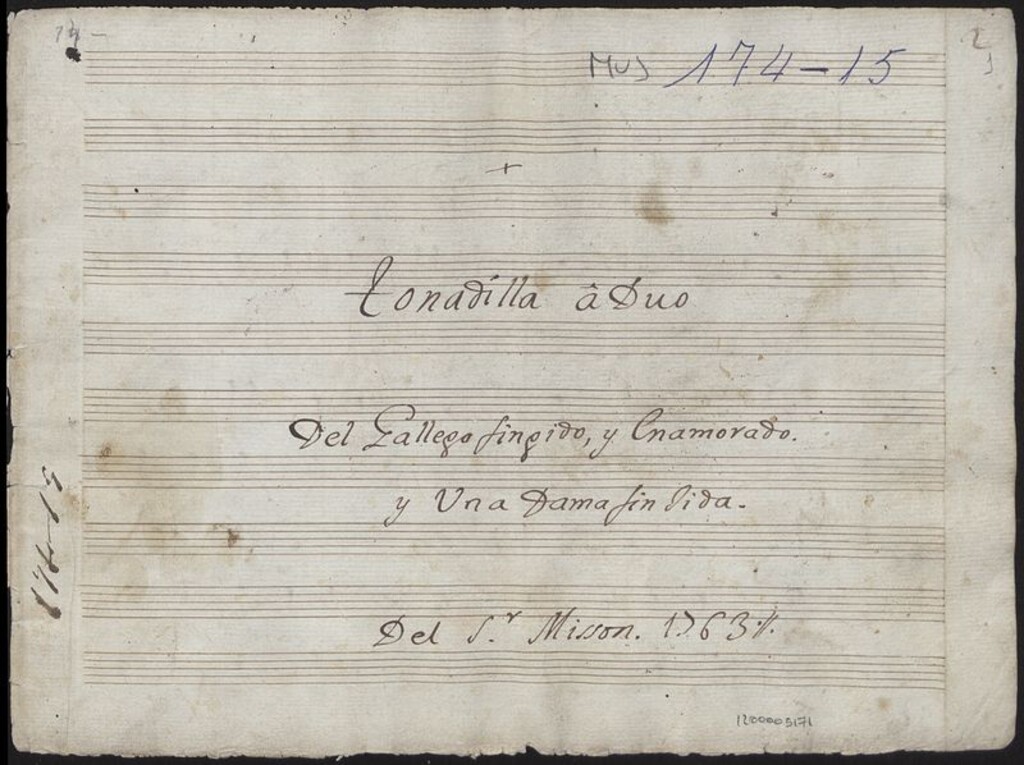 MUS 174-15
+
Tonadilla â Duo
Del Gallego fingido, y Enamorado.
y Una Dama fingida.
Del S.r Misson. 1763
174-15
1200005171